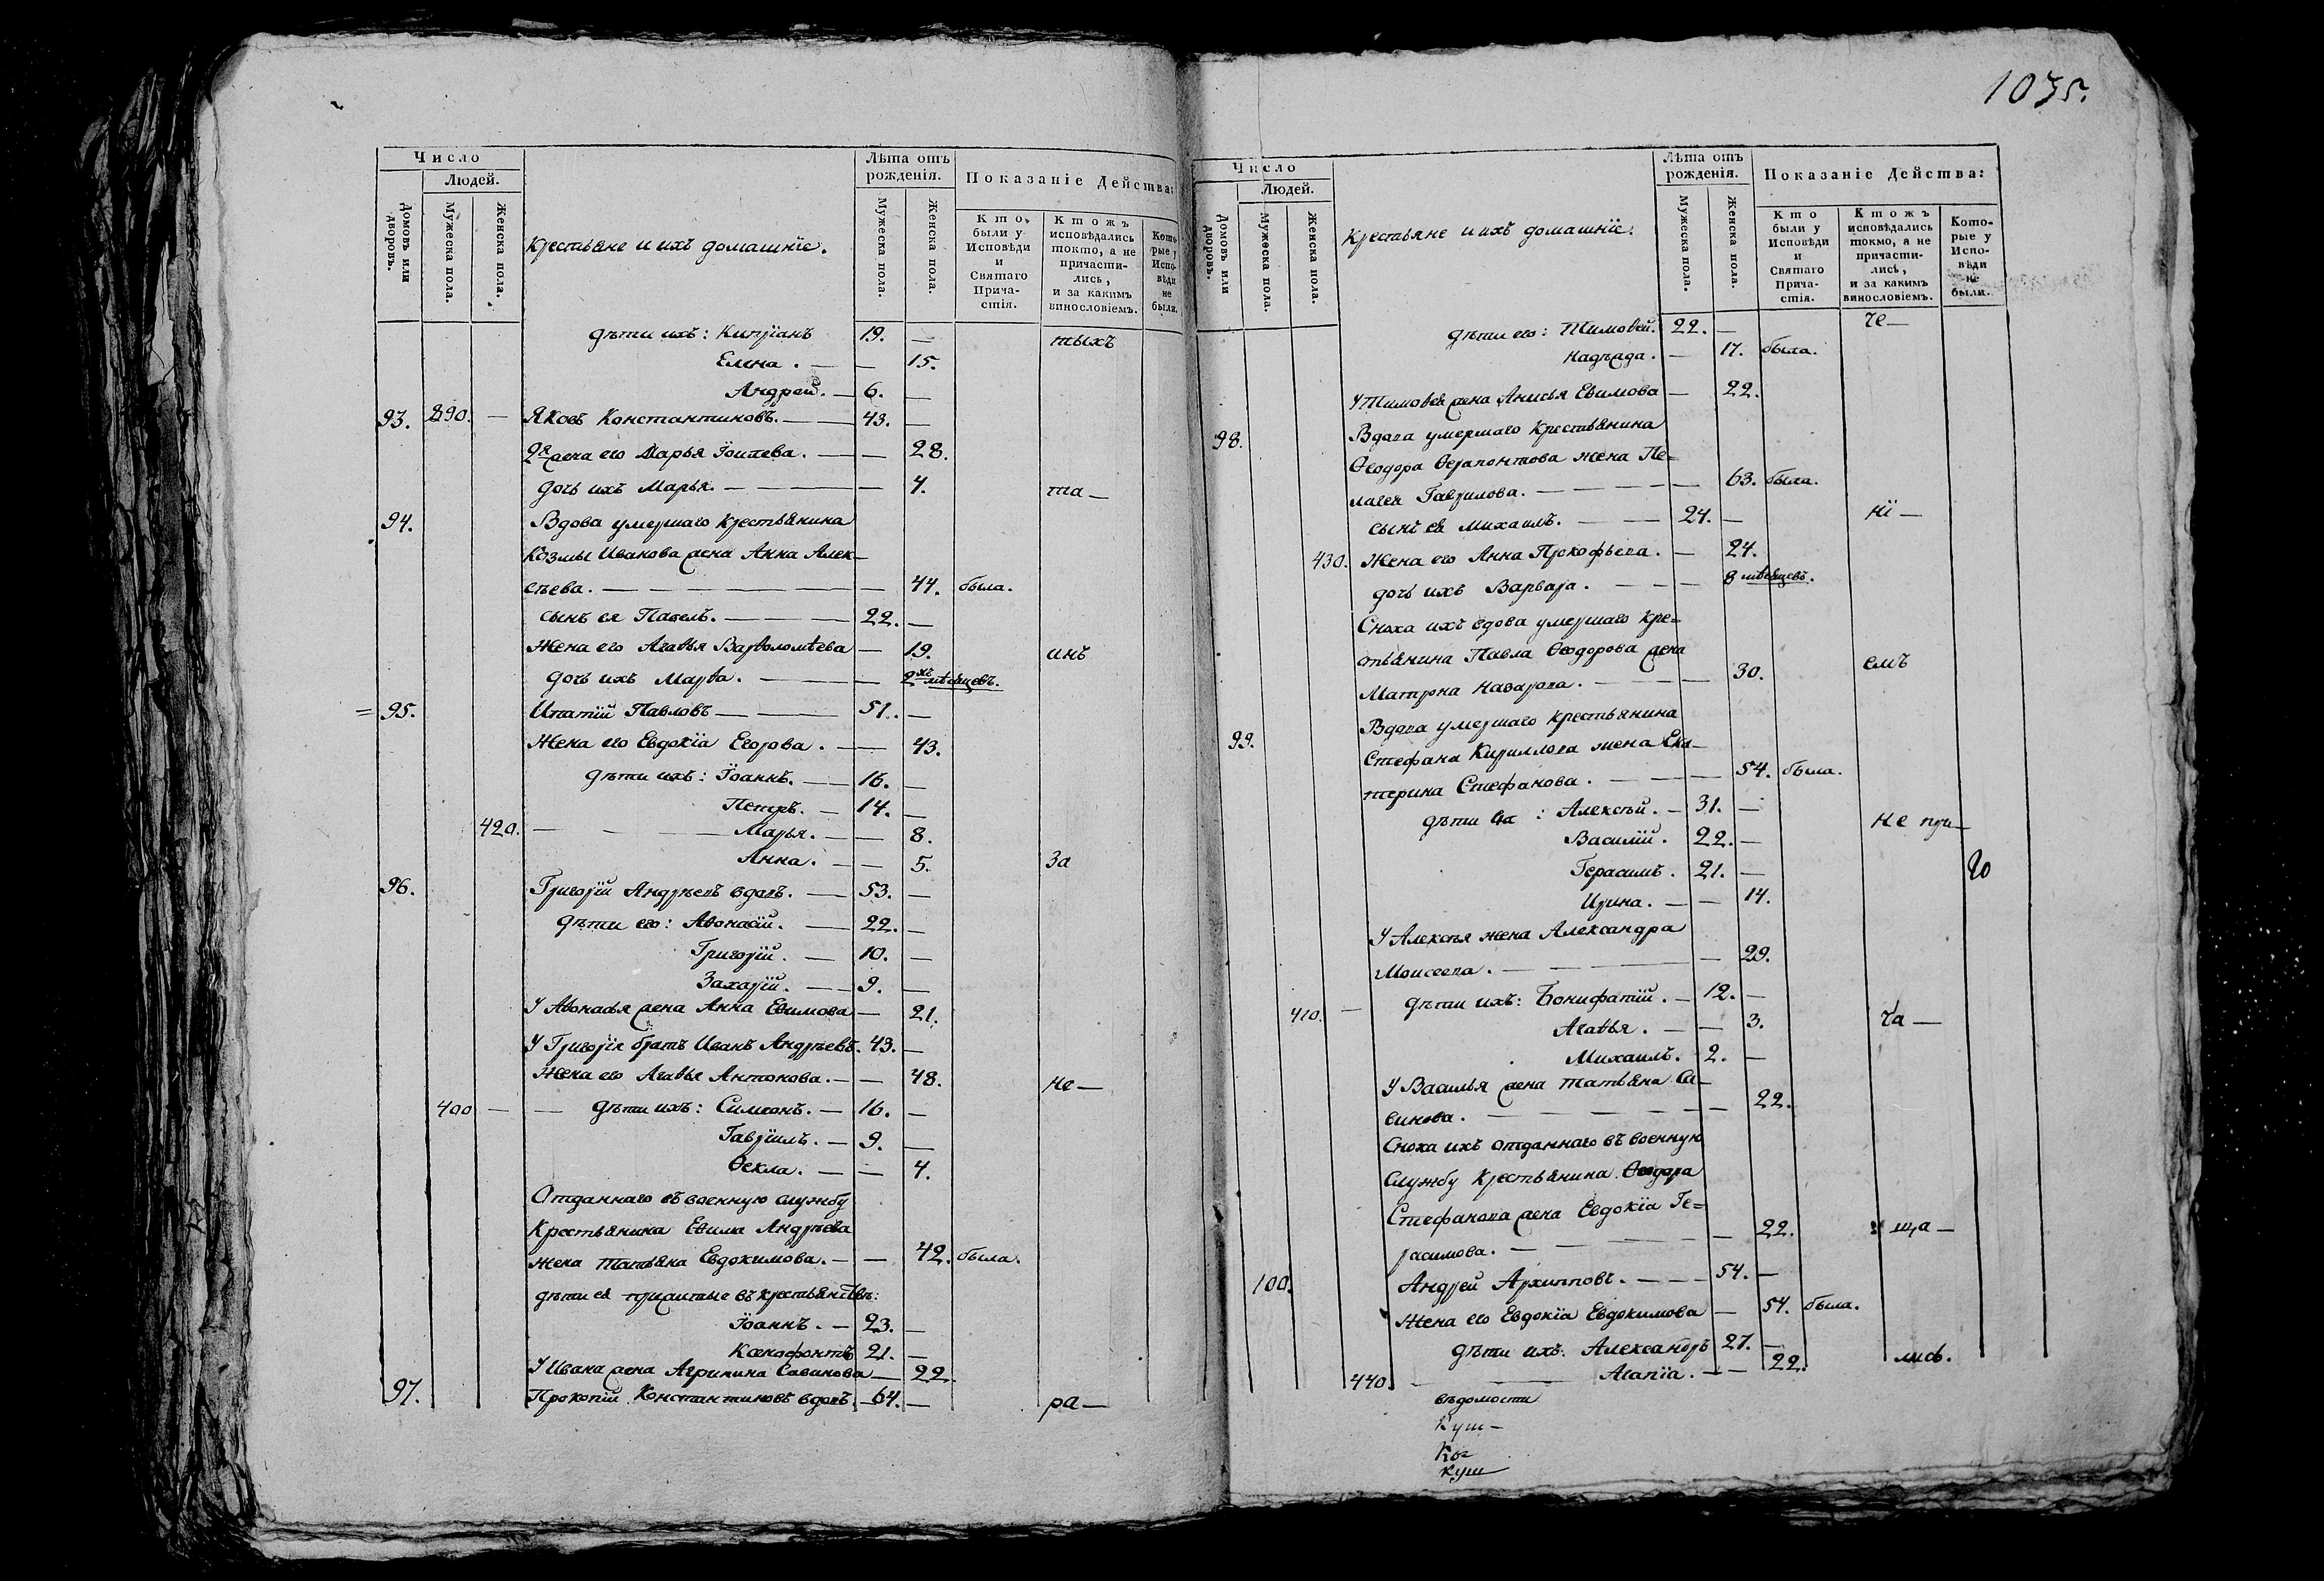 1075.
Число
Людей.
Домовъ или дворовъ.
Мужеска пола.
Женска пола.
Крестьяне и ихъ домашніе.
Лѣта отъ рожденія.
Мужеска пола.
Женска пола.
Показаніе Дѣйства:
Кто были у Исповѣди и Святаго Причастія.
Ктожъ исповѣдались токмо, а не причастились, и за какимъ винословіемъ.
Которые у Исповѣди не были.
дѣти ихъ: Кипріанъ 19. — тыхъ
Елена. — — 15.
Андрей. — 6. —
93. 390. — Яковъ Константиновъ. — 43. —
2я жена его Марья Іоилева. — — 28.
дочь ихъ Марья. — — 4. та —
94. Вдова умершаго крестьянина
Козмы Иванова жена Анна Алек—
сѣева. — — 44. была.
сынъ ея Павелъ. — 22. —
Жена его Агаѳья Варѳоломѣева — 19. инъ
дочь ихъ Марѳа. — — 2хъ мѣсяцевъ.
= 95. Ипатій Павловъ — 51. —
Жена его Евдокіа Егорова. — — 43.
дѣти ихъ: Іоаннъ. — 16. —
Петръ. — 14. —
420. — Марья. — — 8.
Анна. — — 5. За
96. Григорій Андрѣевъ вдовъ. — 53. —
дѣти его: Аѳонасій. — 22. —
Григорій. — 10. —
Захарій. — 9. —
У Аѳонасья жена Анна Евимова — 21.
У Григорія братъ Иванъ Андрѣевъ. 43. —
Жена его Агаѳья Антонова. — — 48. не —
400 — дѣти ихъ: Симеонъ. — 16. —
Гавріилъ. — 9. —
Ѳекла. — — 4.
Отданнаго въ военную службу
Крестьянина Евима Андрѣева
жена Татьяна Евдокимова. — — 42. была.
дѣти ея прижитые въ крестьянствѣ:
Іоаннъ. — 23. —
Ксенофонтъ 21. —
У Ивана жена Агрипина Савинова — 22.
97. Прокопій Константиновъ вдовъ. — 64. — ра —
Число
Людей.
Домовъ или дворовъ.
Мужеска пола.
Женска пола.
Крестьяне и ихъ домашніе.
Лѣта отъ рожденія.
Мужеска пола.
Женска пола.
Показаніе Дѣйства:
Кто были у Исповѣди и Святаго Причастія.
Ктожъ исповѣдались токмо, а не причастились, и за какимъ винословіемъ.
Которые у Исповѣди не были.
дѣти его: Тимоѳей. 22. — че —
Надѣжда. — 17. была.
У Тимоѳея жена Анисья Евимова — 22.
98. Вдова умершаго Крестьянина
Ѳеодора Ѳерапонтова жена Пе=
лагея Гаврилова. — — 63. была.
сынъ ея Михаилъ. — 24. — ні —
430. Жена его Анна Прокофьева. — 24.
дочь ихъ Варвара. — — 8 мѣсяцевъ.
Сноха ихъ вдова умершаго Кре=
стьянина Павла Ѳеодорова жена
Матрона Назарова. — — 30. емъ
99. Вдова умершаго крестьянина
Стефана Кириллова жена Ека—
терина Стефанова. — — 54. была.
дѣти ея: Алексѣй. — 31. — не при—
Василій. 22. —
Герасимъ. 21. —
Ирина. — — 14.
У Алексѣя жена Александра
Моисеева. — — 29.
410. — дѣти ихъ: Бонифатій. — 12. —
Агаѳья. — — 3. ча —
Михаилъ. 2. —
У Василья жена Татьяна Са—
винова. — — 22.
Сноха ихъ отданнаго въ военную
Службу Крестьянина Ѳеодора
Стефанова жена Евдокіа Ге=
расимова. — — 22. ща —
100. Андрей Архиповъ. — 54. —
Жена его Евдокіа Евдокимова — 54. была.
дѣти ихъ: Александръ 27. —
440. — Агапіа. — — 22. лись.
вѣдомости
Куш—
куш